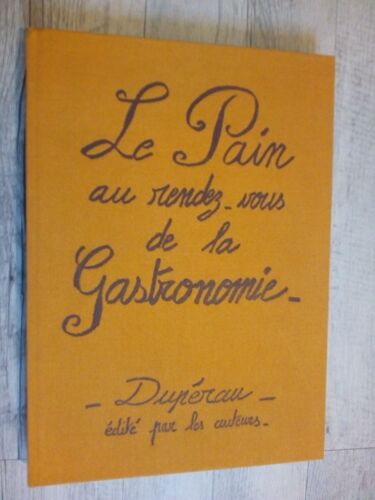 Le Pain
au rendez-vous
de la
Gastronomie-
- Dupérau -
édité par les auteurs-